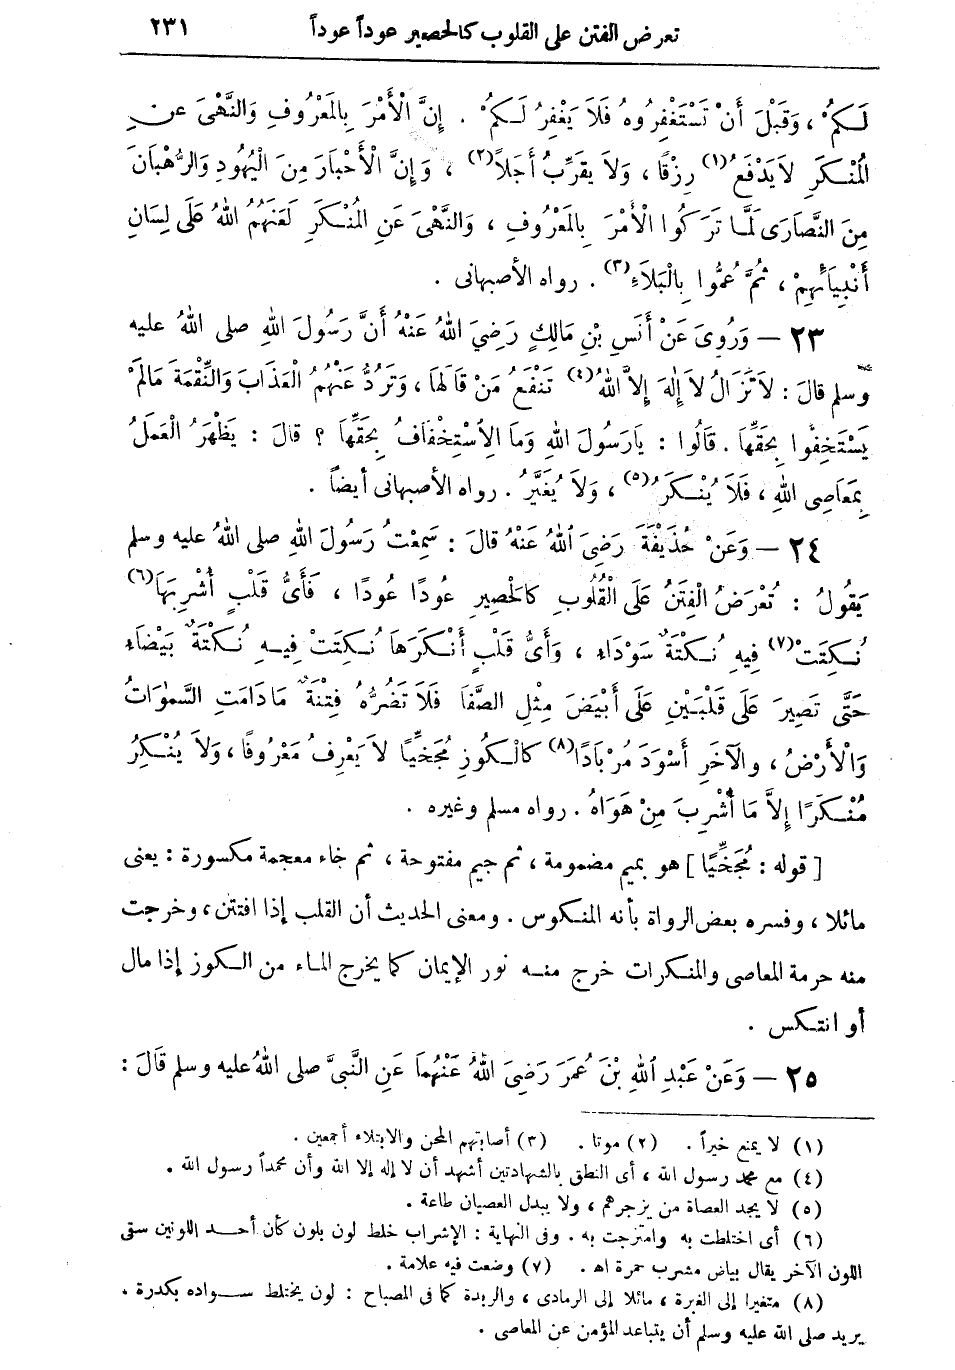 تعرض الفتن على القلوب كالحصير عوداً عوداً ٢٣١
لَكُمْ ، وَقَبْلَ أَنْ تَسْتَغْفِرُوهُ فَلَا يَغْفِرُ لَكُمْ . إِنَّ الْأَمْرَ بِالْمَعْرُوفِ وَالنَّهْىَ عنِ
الْمُنْكَرِ لَا يَدْفَعُ (١) رِزْقًا ، وَلَا يُقَرِّبُ أَجَلاً (٢) ، وَإِنَّ الْأَحْبَارَ مِنَ الْيَهُودِ وَالرُّهْبَانَ
مِنَ النَّصَارَى لَمَّا تَرَكُوا الْأَمْرَ بِالْمَعْرُوفِ ، وَالنَّهْىَ عَنِ الْمُنْكَرِ لَعَنَهُمُ اللهُ عَلَى لِسَانِ
أَنْبِيَائِهِمْ ، ثُمَّ عُمُّوا بِالْبَلَاءِ (٣) . رواه الأصبهانى .
٢٣ — وَرُوِىَ عَنْ أَنَسِ بْنِ مَالِكٍ رَضِيَ اللهُ عَنْهُ أَنَّ رَسُولَ اللهِ صلى اللهُ عليه
وسلم قالَ : لَا تَزَالُ لَا إِلٰهَ إِلاَّ اللهُ (٤) تَنْفَعُ مَنْ قَالَهَا ، وَتَرُدُّ عَنْهُمُ الْعَذَابَ وَالنِّقْمَةَ مَالَمْ
يَسْتَخِفُّوا بِحَقِّهَا . قَالُوا : يَارَسُولَ اللهِ وَمَا الِاسْتِخْفَافُ بِحَقِّهَا ؟ قالَ : يَظْهَرُ الْعَمَلُ
بِمَعَاصِى اللهِ ، فَلَا يُنْكَرُ (٥) ، وَلَا يُغَيَّرُ . رواه الأصبهانى أيضاً .
٢٤ — وَعَنْ حُذَيْفَةَ رَضِىَ اللهُ عَنْهُ قالَ : سَمِعْتُ رَسُولَ اللهِ صلى اللهُ عليه وسلم
يَقُولُ : تُعْرَضُ الْفِتَنُ عَلَى الْقُلُوبِ كالْحَصِيرِ عُودًا عُودًا ، فَأَىُّ قَلْبٍ أُشْرِبَهَا (٦)
نُكِتَتْ (٧) فِيهِ نُكْتَةٌ سَوْدَاءُ ، وَأَىُّ قَلْبٍ أَنْكَرَهَا نُكِتَتْ فِيهِ نُكْتَةٌ بَيْضَاءُ
حَتَّى تَصِيرَ عَلَى قَلْبَيْنِ عَلَى أَبْيَضَ مِثْلِ الصَّفَا فَلَا تَضُرُّهُ فِتْنَةٌ مَادَامَتِ السَّمٰوَاتُ
وَالْأَرْضُ ، والآخَرِ أَسْوَدَ مُرْبَادًّا (٨) كالْكُوزِ مُجَخِّيًا لَا يَعْرِفُ مَعْرُوفًا ، وَلَا يُنْكِرُ
مُنْكَرًا إِلاَّ مَا أُشْرِبَ مِنْ هَوَاهُ . رواه مسلم وغيره .
[ قوله : مُجَخِّيًا ] هو بميم مضمومة ، ثم جيم مفتوحة ، ثم خاء معجمة مكسورة : يعنى
مائلا ، وفسره بعض الرواة بأنه المنكوس . ومعنى الحديث أن القلب إذا افتتن ، وخرجت
منه حرمة المعاصى والمنكرات خرج منه نور الإيمان كما يخرج الماء من الكوز إذا مال
أو انتكس .
٢٥ — وَعَنْ عَبْدِ اللهِ بْنِ عُمَرَ رَضِىَ اللهُ عَنْهُمَا عَنِ النَّبِىِّ صلى اللهُ عليه وسلم قَالَ :
(١) لا يمنع خيراً . (٢) موتا . (٣) أصابتهم المحن والابتلاء أجمعين .
(٤) مع محمد رسول الله ، أى النطق بالشهادتين أشهد أن لا إله إلا الله وأن محمداً رسول الله .
(٥) لا يجد العصاة من يزجرهم ، ولا يبدل العصيان طاعة .
(٦) أى اختلطت به وامتزجت به . وفى النهاية : الإشراب خلط لون بلون كأن أحد اللونين سقى
اللون الآخر يقال بياض مشرب حمرة اه . (٧) وضعت فيه علامة .
(٨) متغيرا إلى الغبرة ، مائلا إلى الرمادى ، والربدة كما فى المصباح : لون يختلط سواده بكدرة .
يريد صلى الله عليه وسلم أن يتباعد المؤمن عن المعاصى .